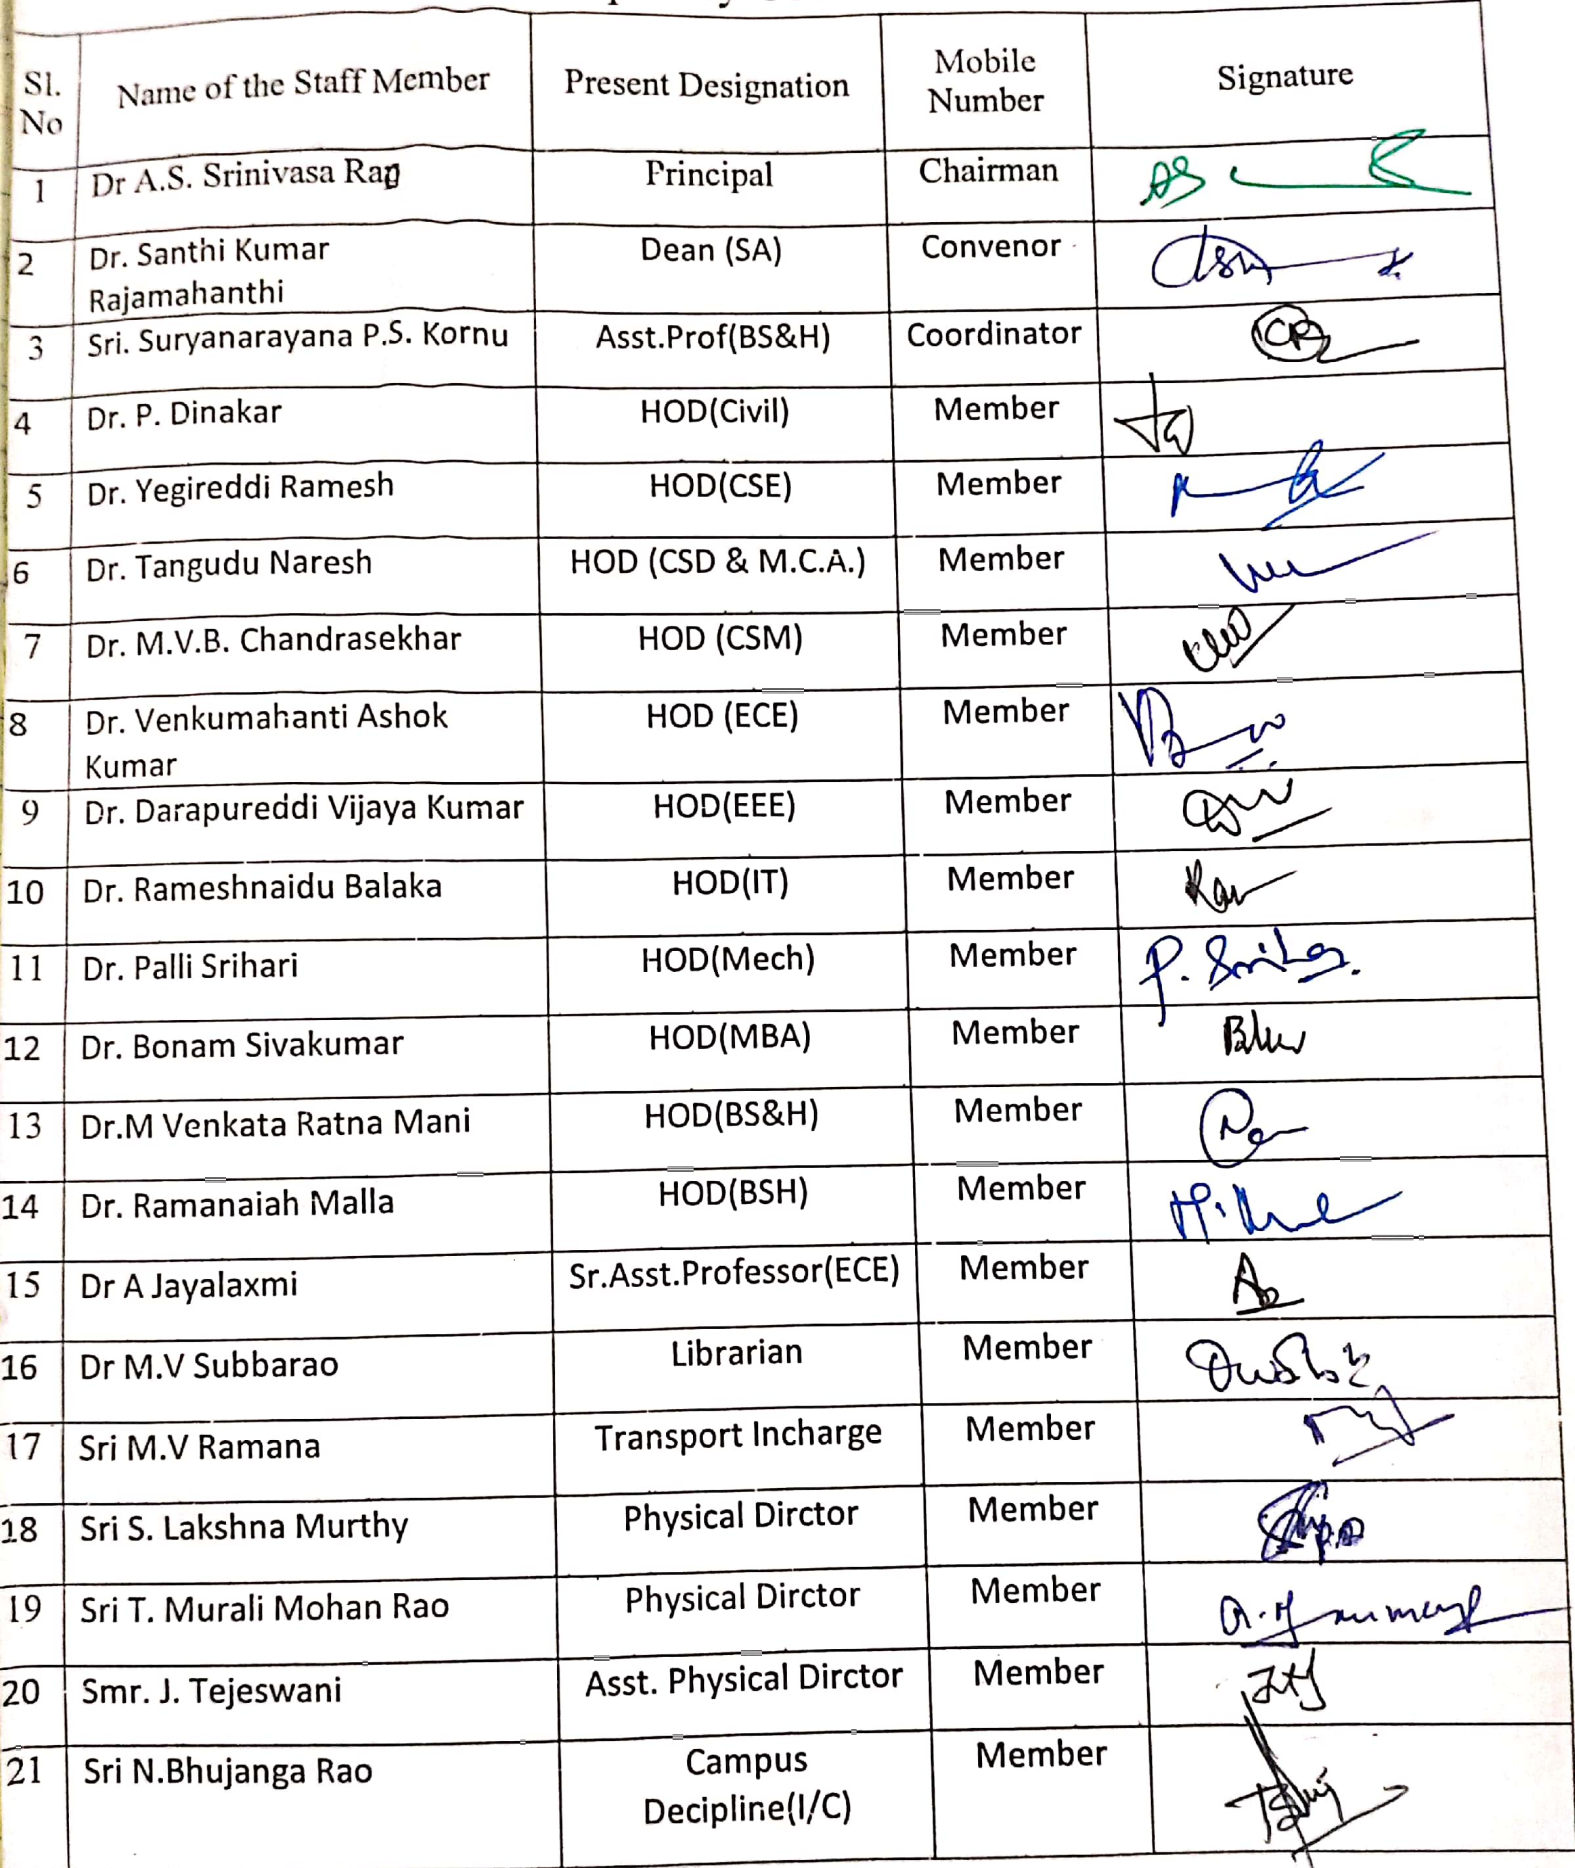 Sl. No Name of the Staff Member Present Designation Mobile Number Signature
1 Dr A.S. Srinivasa Rao Principal Chairman
2 Dr. Santhi Kumar Dean (SA) Convenor
Rajamahanthi
3 Sri. Suryanarayana P.S. Kornu Asst.Prof(BS&H) Coordinator
4 Dr. P. Dinakar HOD(Civil) Member
5 Dr. Yegireddi Ramesh HOD(CSE) Member
6 Dr. Tangudu Naresh HOD (CSD & M.C.A.) Member
7 Dr. M.V.B. Chandrasekhar HOD (CSM) Member
8 Dr. Venkumahanti Ashok HOD (ECE) Member
Kumar
9 Dr. Darapureddi Vijaya Kumar HOD(EEE) Member
10 Dr. Rameshnaidu Balaka HOD(IT) Member
11 Dr. Palli Srihari HOD(Mech) Member P. Srihari
12 Dr. Bonam Sivakumar HOD(MBA) Member
13 Dr.M Venkata Ratna Mani HOD(BS&H) Member
14 Dr. Ramanaiah Malla HOD(BSH) Member
15 Dr A Jayalaxmi Sr.Asst.Professor(ECE) Member
16 Dr M.V Subbarao Librarian Member
17 Sri M.V Ramana Transport Incharge Member
18 Sri S. Lakshna Murthy Physical Dirctor Member
19 Sri T. Murali Mohan Rao Physical Dirctor Member
20 Smr. J. Tejeswani Asst. Physical Dirctor Member
21 Sri N.Bhujanga Rao Campus Member
Decipline(I/C)